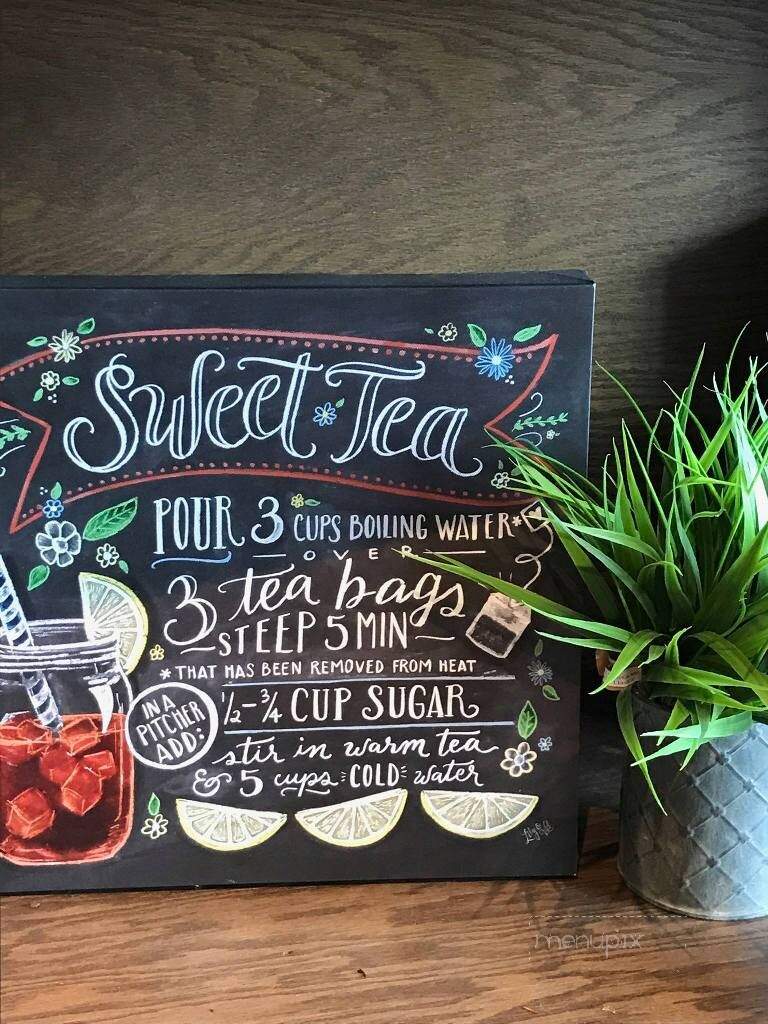 Sweet Tea
POUR 3 CUPS BOILING WATER*
OVER
3 tea bags
STEEP 5 MIN
*THAT HAS BEEN REMOVED FROM HEAT
IN A
PITCHER
ADD:
1/2-3/4 CUP SUGAR
stir in warm tea
& 5 cups COLD water
menupix